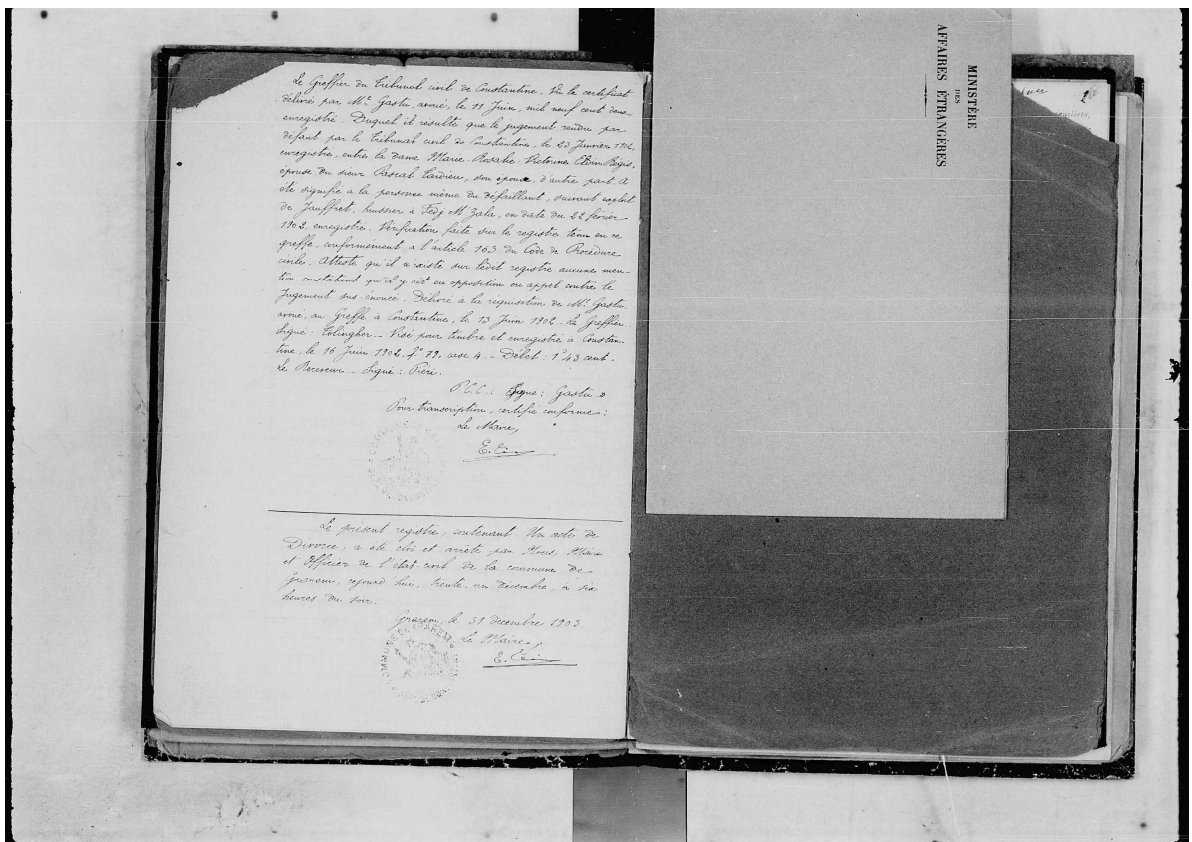 Le Greffier du Tribunal civil de Constantine. Vu le certificat
délivré par Me Gastu, avoué, le 11 Juin, mil neuf cent deux,
enregistré. Duquel il resulte que le jugement rendu par
défaut par le Tribunal civil de Constantine, le 23 Janvier 1902,
enregistré, entre la dame Marie Rosalie Victorine
épouse du sieur Pascal Tardieu, son époux, d'autre part. A
été signifié à la personne même du défaillant, suivant exploit
de Jauffret, huissier à Fedj M'Zala, en date du 22 février
1902, enregistré. Vérification faite sur le registre tenu en ce
greffe, conformement a l'article 163 du Code de Procedure
civile. Atteste qu'il n'existe sur ledit registre aucune men-
tion constatant qu'il y ait eu opposition ou appel contre le
Jugement sus-énoncé. Délivré à la requisition de Me Gastu
avoué, au Greffe à Constantine, le 13 Juin 1902. Le Greffier
signé: Tolingher. Visé pour timbre et enregistré à Constan-
tine, le 16 Juin 1902, fo 79, case 4. Débet: 1f 43 cent.
Le Receveur. Signé: Piéri.
P.C.C.: Signé: Gastu.
Pour transcription, certifié conforme:
Le Maire,
Le présent registre, contenant Un acte de
Divorce, a été clos et arrêté par Nous, Maire
et Officier de l'état-civil de la commune de
Grarem, cejourd'hui, trente-un décembre, à six
heures du soir.
Grarem, le 31 décembre 1903
Le Maire,
COMMUNE DE GRAREM
MINISTÈRE
DES
AFFAIRES ÉTRANGÈRES